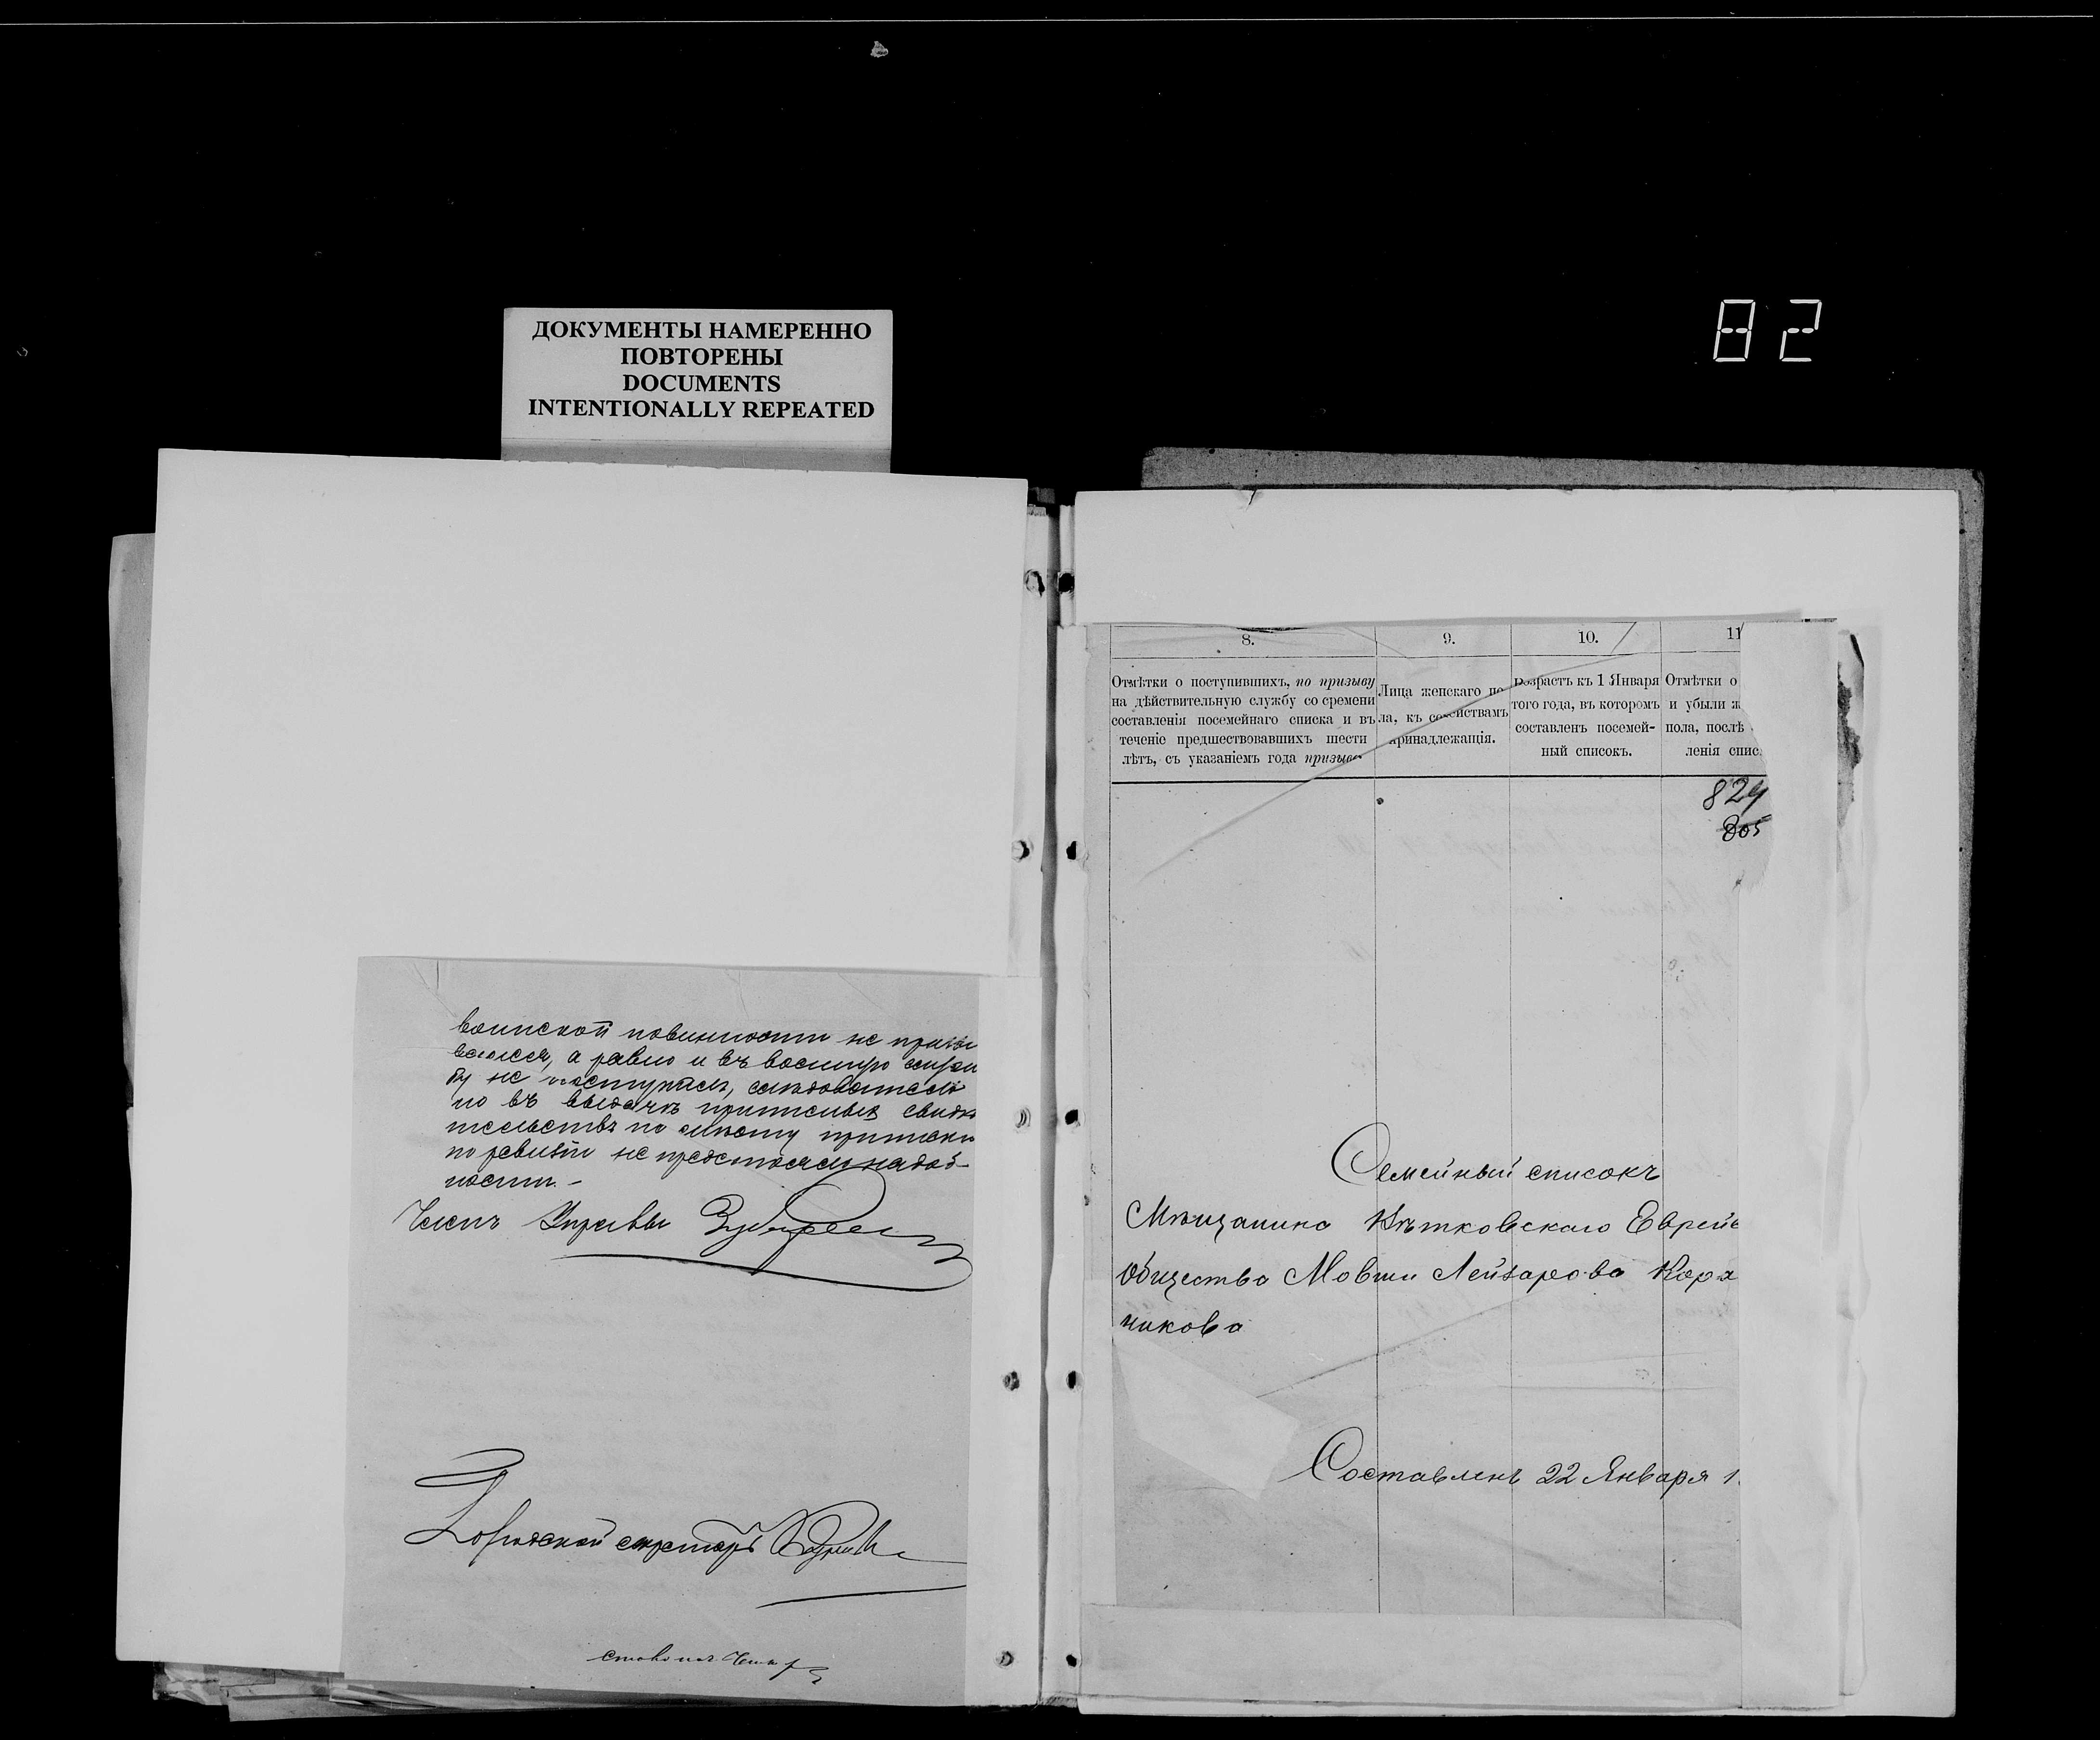 82
ДОКУМЕНТЫ НАМЕРЕННО
ПОВТОРЕНЫ
DOCUMENTS
INTENTIONALLY REPEATED
воинской повинности не призы
вался, а равно и въ военную служ
бу не поступалъ, следователь
но въ выдачѣ приписныхъ свидѣ
тельствъ по
по ревизіи не предстояло надоб-
ности. -
Членъ Управы
Городской секретарь
8. 9. 10. 11
Отмѣтки о поступившихъ, по призыву
на дѣйствительную службу со времени
составленія посемейнаго списка и въ
теченіе предшествовавшихъ шести
лѣтъ, съ указаніемъ года призыва
Лица женскаго по
ла, къ семействамъ
принадлежащія.
Возрастъ къ 1 Января
того года, въ которомъ
составленъ посемей-
ный списокъ.
Отмѣтки о
и убыли ж
пола, послѣ
ленія спис
824
805
Семейный списокъ
Мѣщанина Вѣтковскаго Еврейс
общества Мовши Лейзарова Коря
чикова
Составленъ 22 Января 1